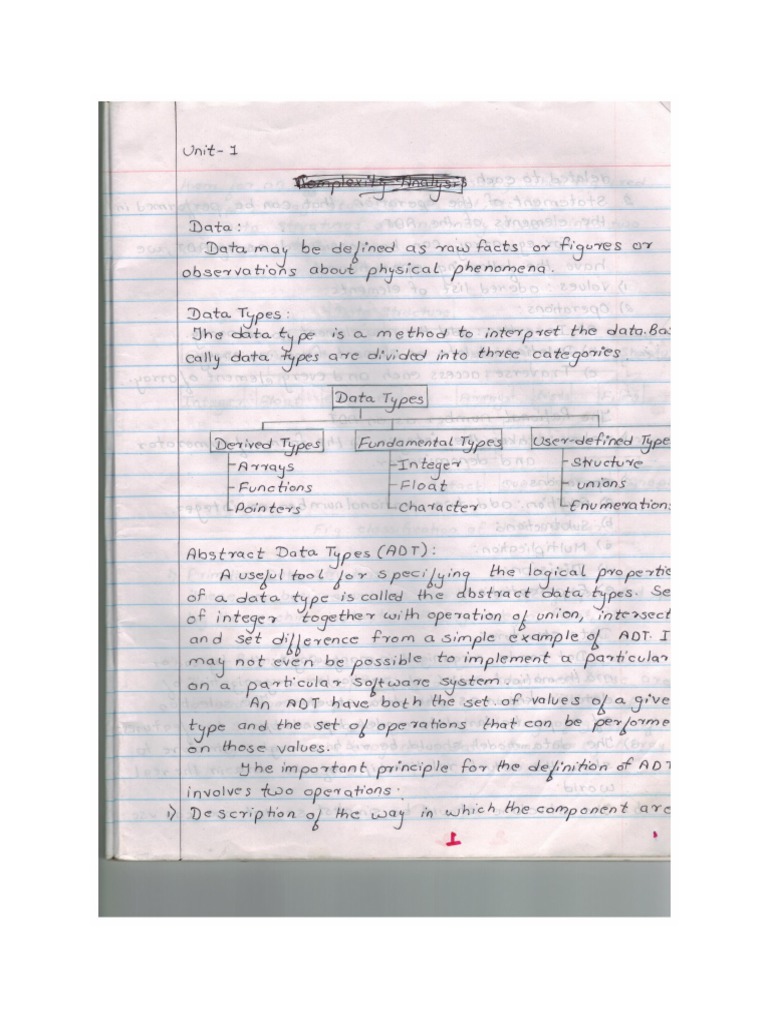 Unit - 1
Complexity Analysis
Data :
Data may be defined as raw facts or figures or
observations about physical phenomena.
Data Types :
The data type is a method to interpret the data. Bas
cally data types are divided into three categories.
Data Types
Derived Types Fundamental Types User-defined Type
Arrays Integer Structure
Functions Float unions
Pointers Character Enumerations
Abstract Data Types (ADT) :
A useful tool for specifying the logical propertie
of a data type is called the abstract data types. Se
of integer together with operation of union, intersect
and set difference from a simple example of ADT. I
may not even be possible to implement a particular
on a particular software system.
An ADT have both the set of values of a give
type and the set of operations that can be performe
on those values.
The important principle for the definition of ADT
involves two operations :
i) Description of the way in which the component are
1